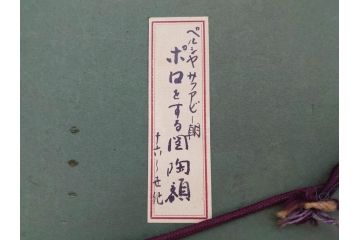 ペルシヤサファビー朝
ポロをする図陶額
十六〜世紀